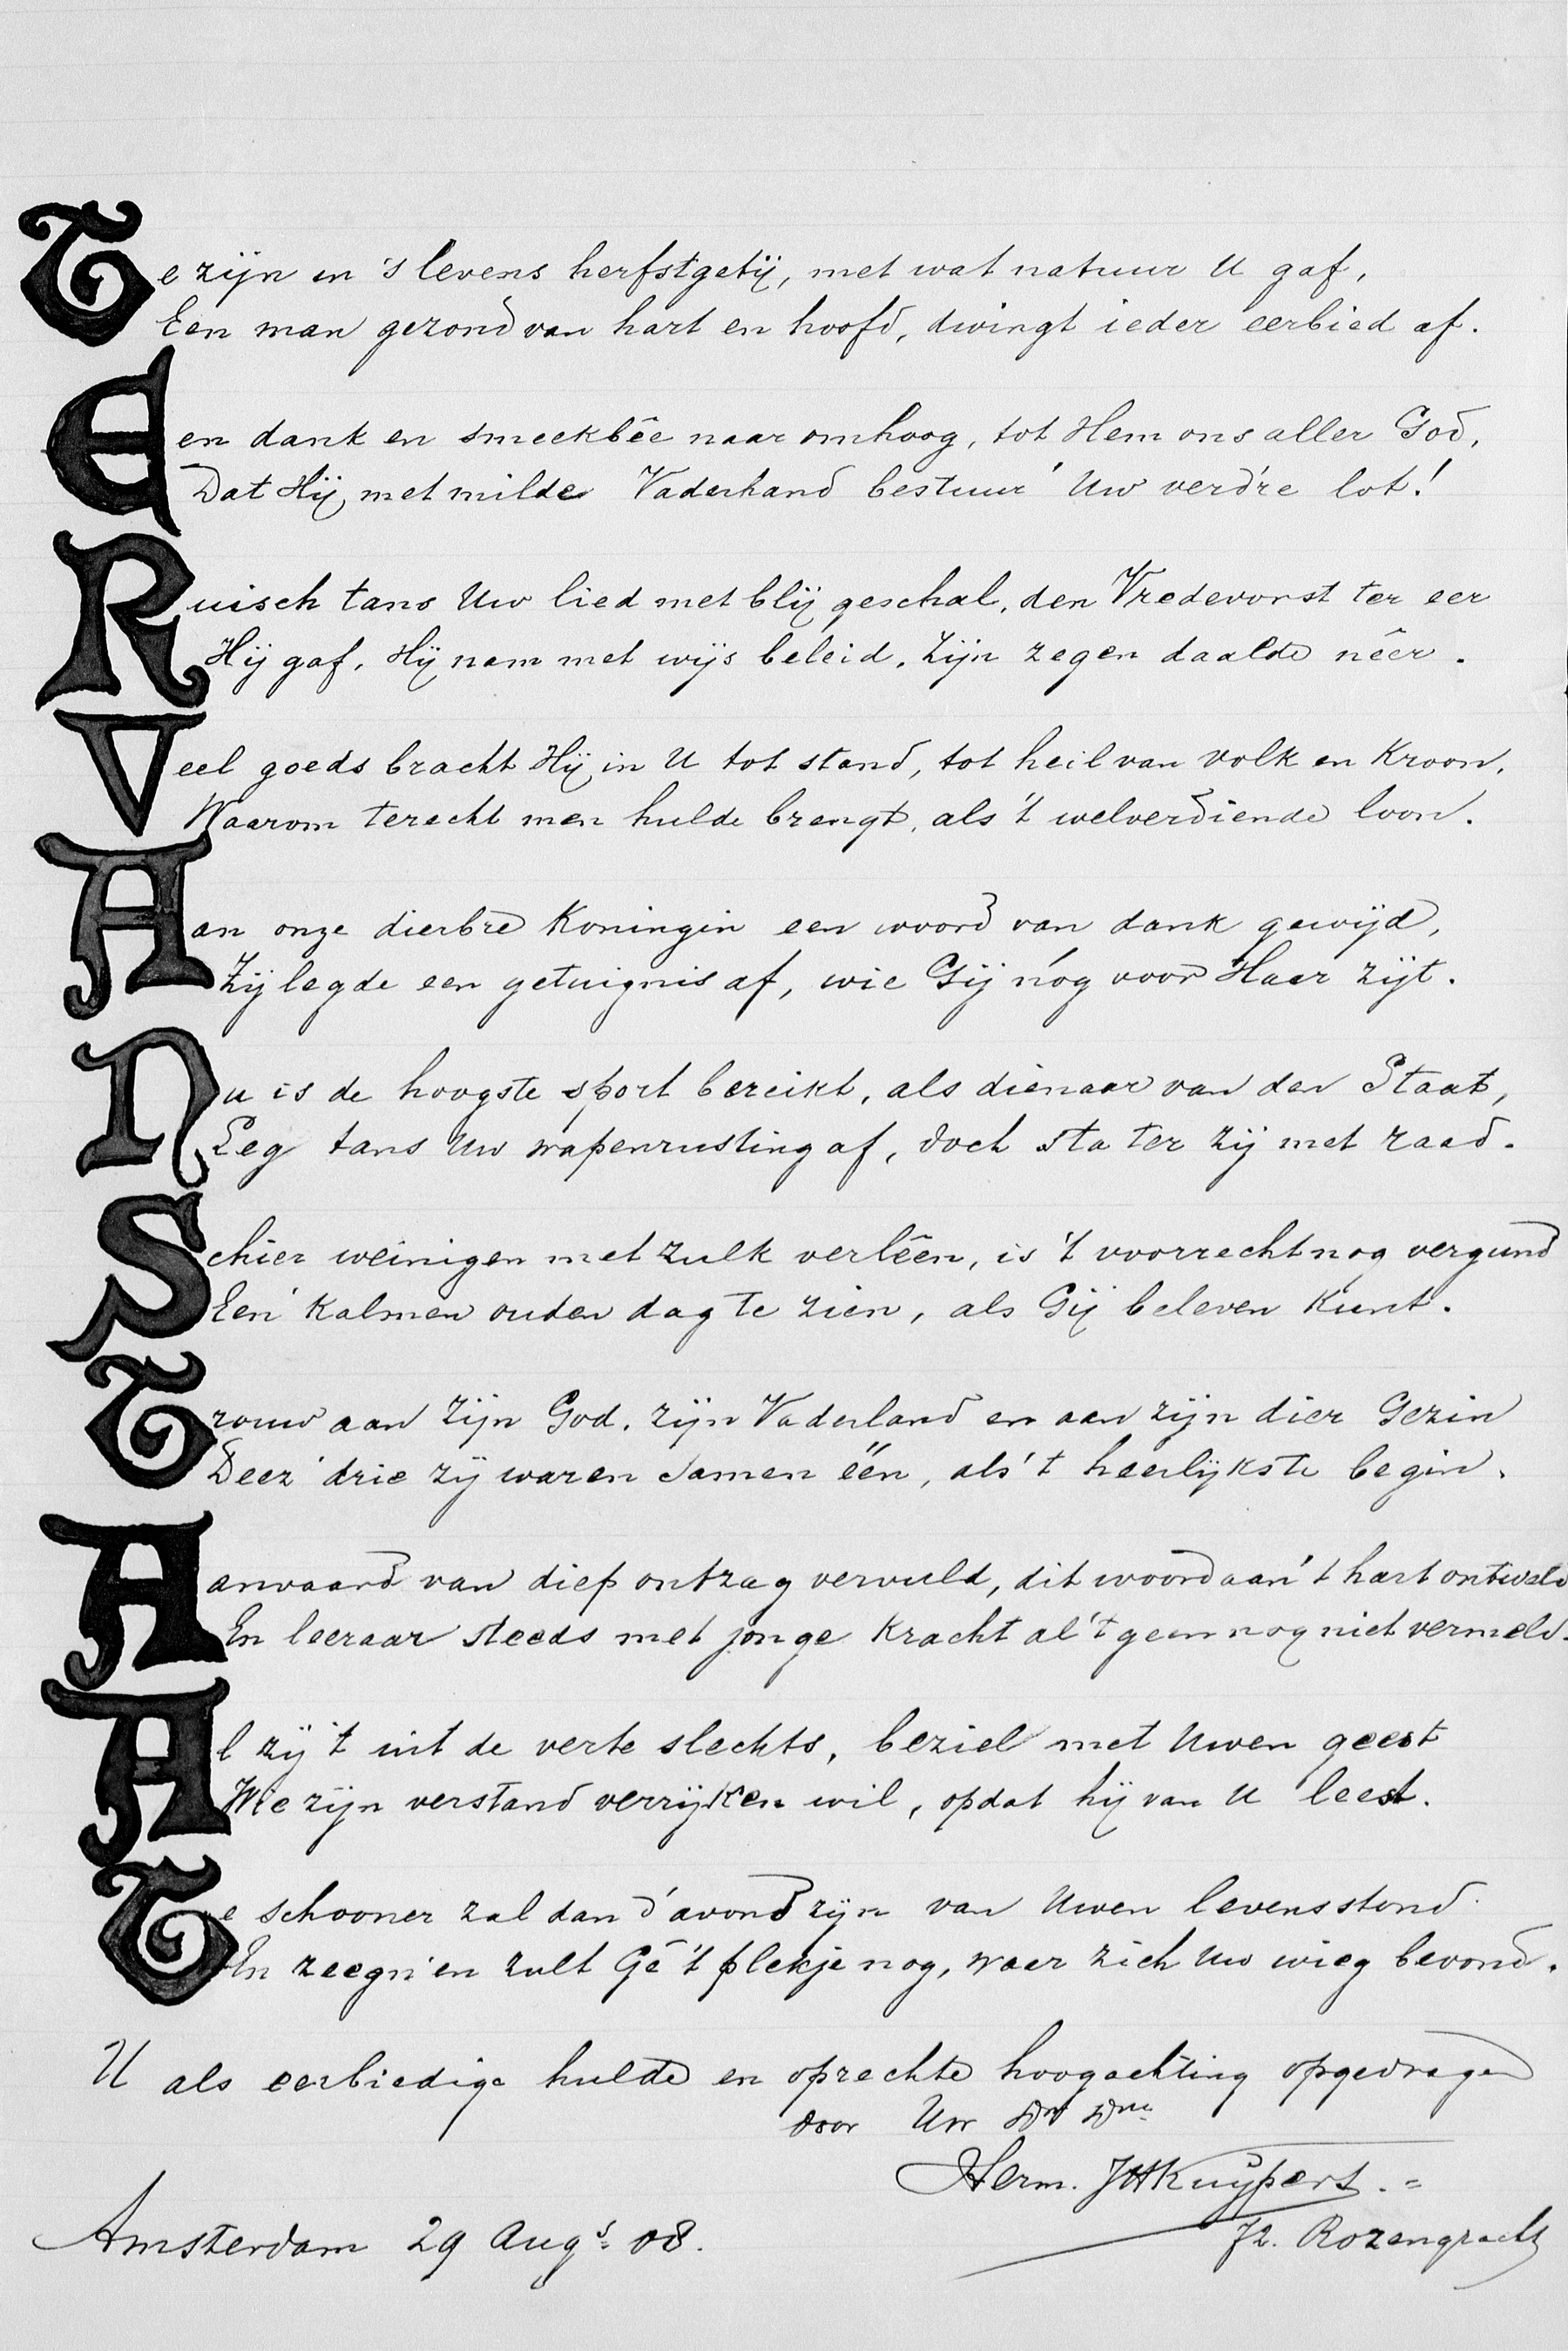 Te zijn in 's levens herfstgetij, met wat natuur U gaf,
Een man gezond van hart en hoofd, dwingt ieder eerbied af.
Een dank en smeekbêe naar omhoog, tot Hem ons aller God,
Dat Hij met milde Vaderhand bestuur' Uw verd're lot!
Ruisch tans Uw lied met blij geschal, den Vredevorst ter eer
Hij gaf, Hij nam met wijs beleid, Zijn zegen daalde nêer.
Veel goeds bracht Hij in U tot stand, tot heil van Volk en Kroon,
Waarom terecht men hulde brengt, als 't welverdiende loon.
Aan onze dierbre Koningin een woord van dank gewijd,
Zij legde een getuignis af, wie Gij nóg voor Haar zijt.
Nu is de hoogste sport bereikt, als dienaar van den Staat,
Leg tans Uw wapenrusting af, doch sta ter zij met raad.
Schier weinigen met zulk verlêen, is 't voorrecht nog vergund
Een' Kalmen ouden dag te zien, als Gij beleven Kunt.
Trouw aan Zijn God, zijn Vaderland en aan zijn dier Gezin
Deez' drie zij waren samen één, als 't heerlijkste begin.
Aanvaard van diep ontzag vervuld, dit woord aan 't hart ontweld
En leeraar steeds met jonge Kracht al 't geen nog niet vermeld.
Al zij 't uit de verte slechts, beziel met Uwen geest
Wie zijn verstand verrijken wil, opdat hij van U leest.
Te schooner zal dan d'avond zijn van Uwen levensstond
En zeegn'en zult Gé 't plekje nog, waar zich Uw wieg bevond.
U als eerbiedige hulde en oprechte hoogachting opgedragen
door Uw
Herm. JH Kuijpers.
Amsterdam 29 Augs 08.
72. Rozengracht